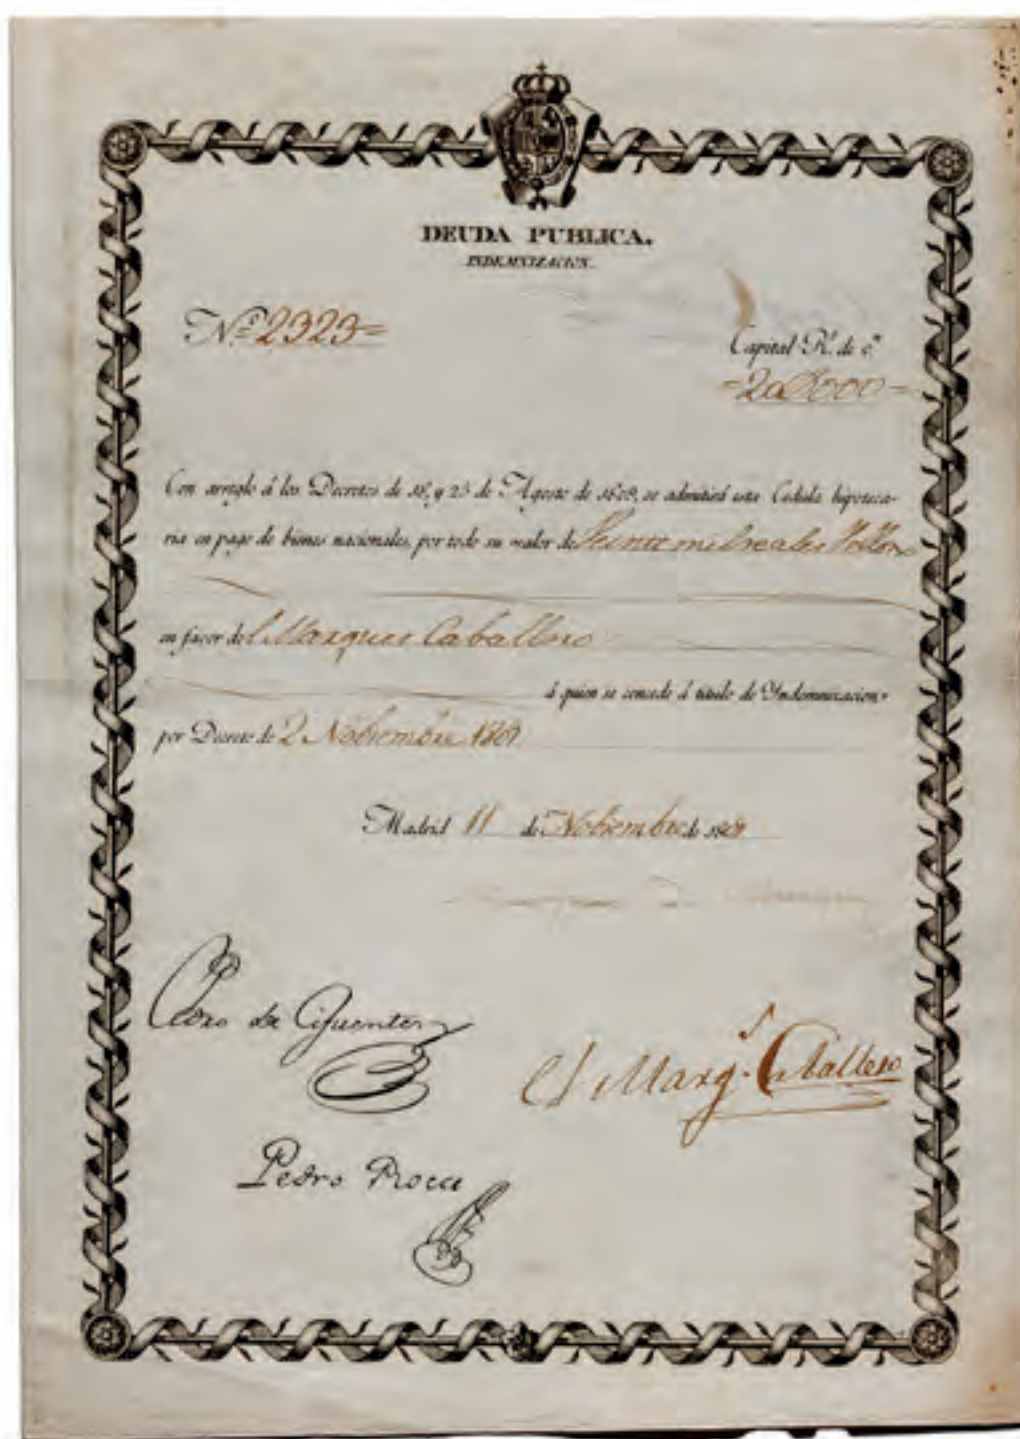 DEUDA PUBLICA.
INDEMNIZACION.
Nº 2323=
Capital Rˢ. de vⁿ
=20000=
Con arreglo á los Decretos de 18, y 25 de Agosto de 1809, se admitirá esta Cédula hipoteca-
ria en pago de bienes nacionales, por todo su valor de Veinte mil reales Vellon
en favor del Marques Caballero
á quien se concede á titulo de Indemnizacion
por Decreto de 2 Nobiembre
Madrid 11 de Nobiembre de
Pedro de Cifuentes
El Marqˢ. Caballero
Pedro Roca